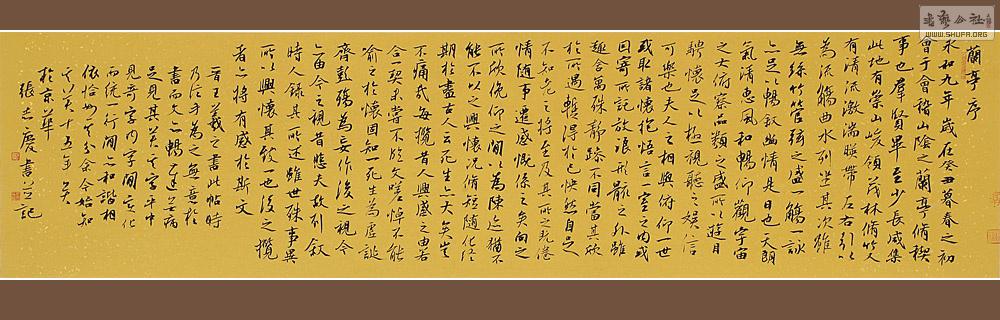 蘭亭序
永和九年歲在癸丑暮春之初
會于會稽山陰之蘭亭脩禊
事也群賢畢至少長咸集
此地有崇山峻領茂林脩竹又
有清流激湍暎帶左右引以
為流觴曲水列坐其次雖
無絲竹管弦之盛一觴一詠
亦足以暢叙幽情是日也天朗
氣清惠風和暢仰觀宇宙
之大俯察品類之盛所以遊目
騁懷足以極視聽之娛信
可樂也夫人之相與俯仰一世
或取諸懷抱悟言一室之內或
因寄所託放浪形骸之外雖
趣舍萬殊靜躁不同當其欣
於所遇暫得於己快然自足
不知老之將至及其所之既倦
情隨事遷感慨係之矣向之
所欣俛仰之間以為陳迹猶不
能不以之興懷況脩短隨化終
期於盡古人云死生亦大矣豈
不痛哉每攬昔人興感之由若
合一契未嘗不臨文嗟悼不能
喻之於懷固知一死生為虛誕
齊彭殤為妄作後之視今
亦由今之視昔悲夫故列敘
時人錄其所述雖世殊事異
所以興懷其致一也後之攬
者亦將有感於斯文
晉王羲之書此帖時
乃信手為之無意於
書而文亦暢達
足見其 字字中
見奇字內字間變化
而統一行間亦和諧相
依恰如 余今始知
十五年矣
於京華
張志慶書並記
書藝公社
WWW.SHUFA.ORG